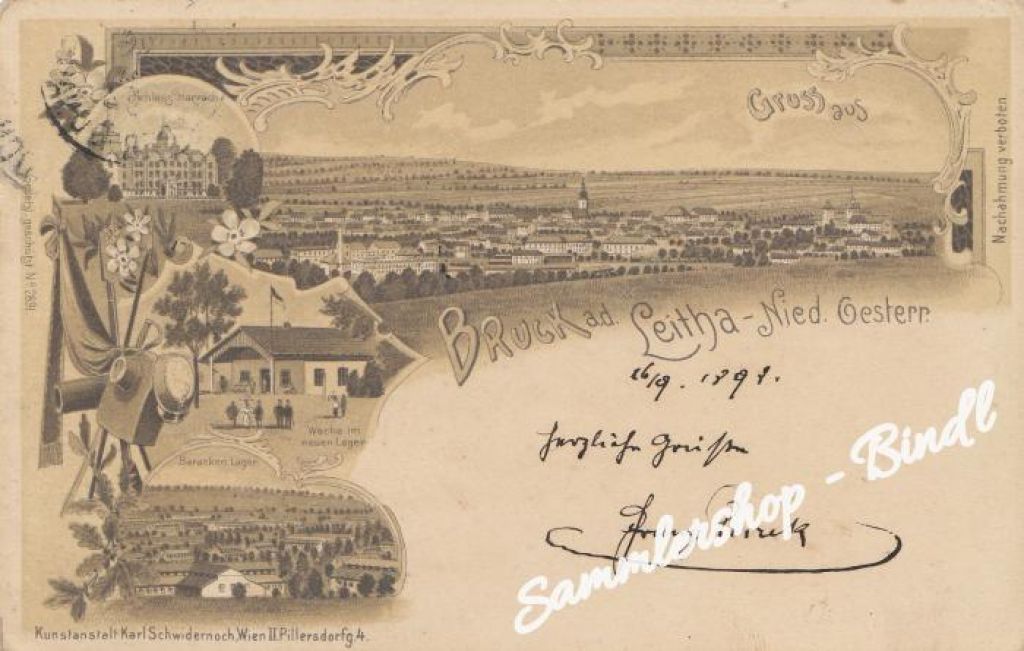 Schloss Harrach
Gruss aus
Nachahmung verboten
BRUCK a.d. Leitha-Nied. Oesterr.
26/9. 1898.
Herzliche Grüsse
Franz
Wache im
neuen Lager
Baracken Lager
Gesetzlich geschützt No
Sammlershop - Bindl
Kunstanstalt Karl Schwidernoch, Wien II. Pillersdorfg. 4.